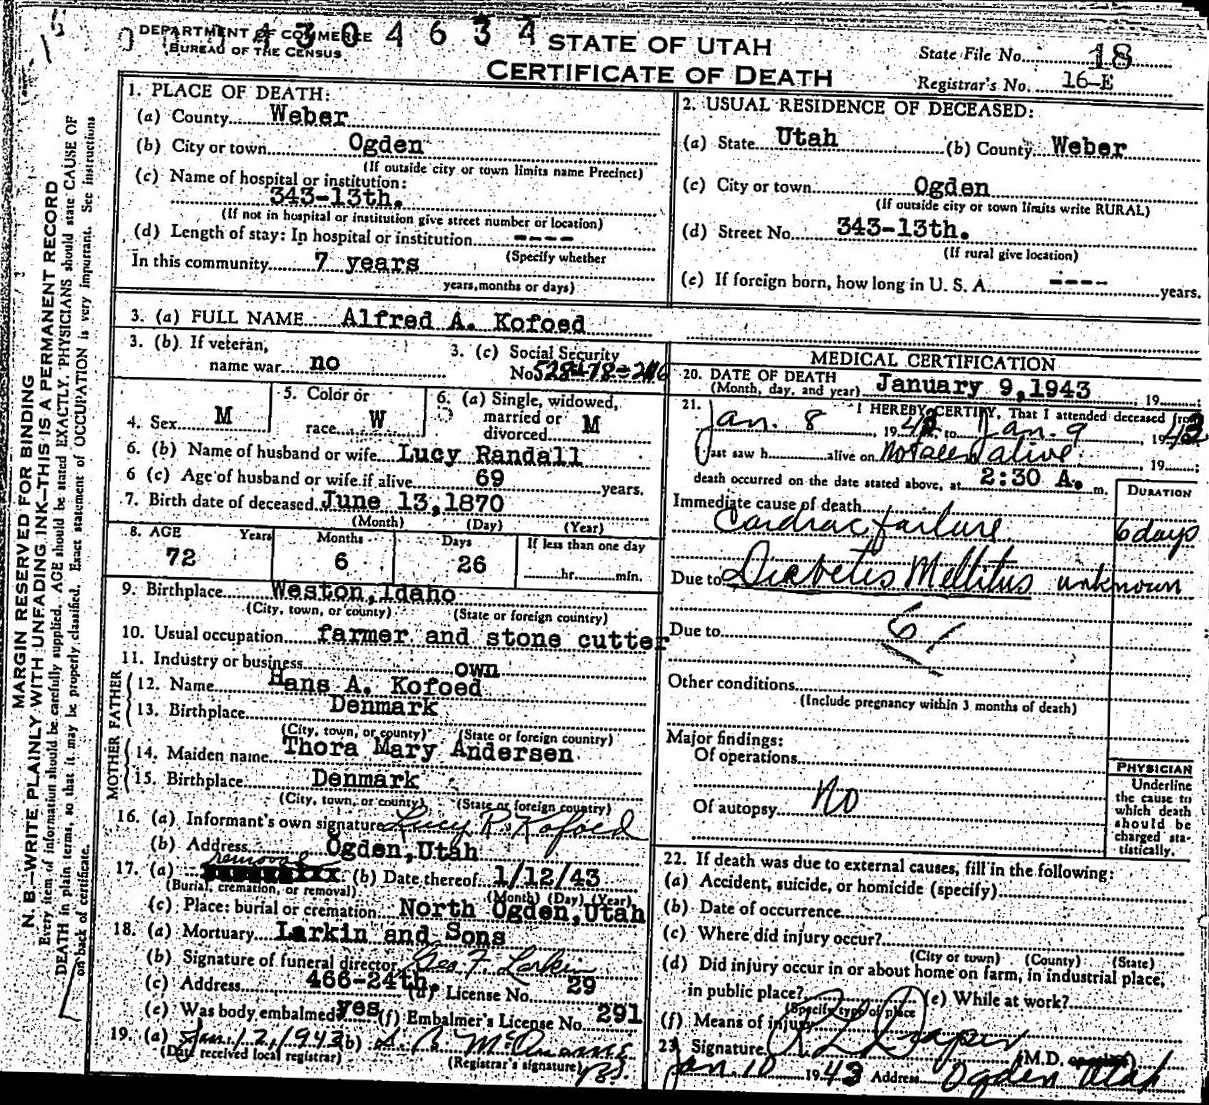 DEPARTMENT OF COMMERCE
BUREAU OF THE CENSUS
4 3 0 4 6 3 4
STATE OF UTAH
CERTIFICATE OF DEATH
State File No. 18
Registrar's No. 16-E
MARGIN RESERVED FOR BINDING
N. B.—WRITE PLAINLY WITH UNFADING INK—THIS IS A PERMANENT RECORD
Every item of information should be carefully supplied. AGE should be stated EXACTLY. PHYSICIANS should state CAUSE OF
DEATH in plain terms, so that it may be properly classified. Exact statement of OCCUPATION is very important. See instructions
on back of certificate.
1. PLACE OF DEATH:
(a) County Weber
(b) City or town Ogden
(If outside city or town limits name Precinct)
(c) Name of hospital or institution:
343-13th.
(If not in hospital or institution give street number or location)
(d) Length of stay: In hospital or institution ----
(Specify whether
In this community 7 years
years, months or days)
2. USUAL RESIDENCE OF DECEASED:
(a) State Utah (b) County Weber
(c) City or town Ogden
(If outside city or town limits write RURAL)
(d) Street No. 343-13th.
(If rural give location)
(e) If foreign born, how long in U. S. A. ---- years.
3. (a) FULL NAME Alfred A. Kofoed
3. (b) If veteran,
name war no
3. (c) Social Security
No.
4. Sex M
5. Color or
race W
6. (a) Single, widowed,
married or
divorced M
6. (b) Name of husband or wife Lucy Randall
6 (c) Age of husband or wife if alive 69 years.
7. Birth date of deceased June 13,1870
(Month) (Day) (Year)
8. AGE Years Months Days If less than one day
72 6 26 hr. min.
9. Birthplace Weston, Idaho
(City, town, or county) (State or foreign country)
10. Usual occupation farmer and stone cutter
11. Industry or business own
FATHER
12. Name Hans A. Kofoed
13. Birthplace Denmark
(City, town, or county) (State or foreign country)
MOTHER
14. Maiden name Thora Mary Andersen
15. Birthplace Denmark
(City, town, or county) (State or foreign country)
16. (a) Informant's own signature Lucy R. Kofoed
(b) Address Ogden, Utah
17. (a) removal (b) Date thereof 1/12/43
(Burial, cremation, or removal) (Month) (Day) (Year)
(c) Place: burial or cremation North Ogden, Utah
18. (a) Mortuary Larkin and Sons
(b) Signature of funeral director Geo. F. Larkin
(c) Address 466-24th. (d) License No. 29
(e) Was body embalmed yes (f) Embalmer's License No. 291
19. (a) Jan. 12, 1943 (b)
(Date received local registrar) (Registrar's signature)
MEDICAL CERTIFICATION
20. DATE OF DEATH
(Month, day, and year) January 9,1943 , 19
21. I HEREBY CERTIFY, That I attended deceased from
Jan. 8 , 1943, to Jan. 9 , 1943
Last saw h alive on Not seen alive , 19
death occurred on the date stated above, at 2:30 A. m.
DURATION
Immediate cause of death
Cardiac failure 6 days
Due to Diabetis Mellitus unknown
Due to 61
Other conditions
(Include pregnancy within 3 months of death)
Major findings:
Of operations
Of autopsy No
PHYSICIAN
Underline
the cause to
which death
should be
charged sta-
tistically.
22. If death was due to external causes, fill in the following:
(a) Accident, suicide, or homicide (specify)
(b) Date of occurrence
(c) Where did injury occur?
(City or town) (County) (State)
(d) Did injury occur in or about home on farm, in industrial place,
in public place? (e) While at work?
(Specify type of place
(f) Means of injury
23. Signature R L Draper (M.D.
Jan. 10 1943 Address Ogden Utah